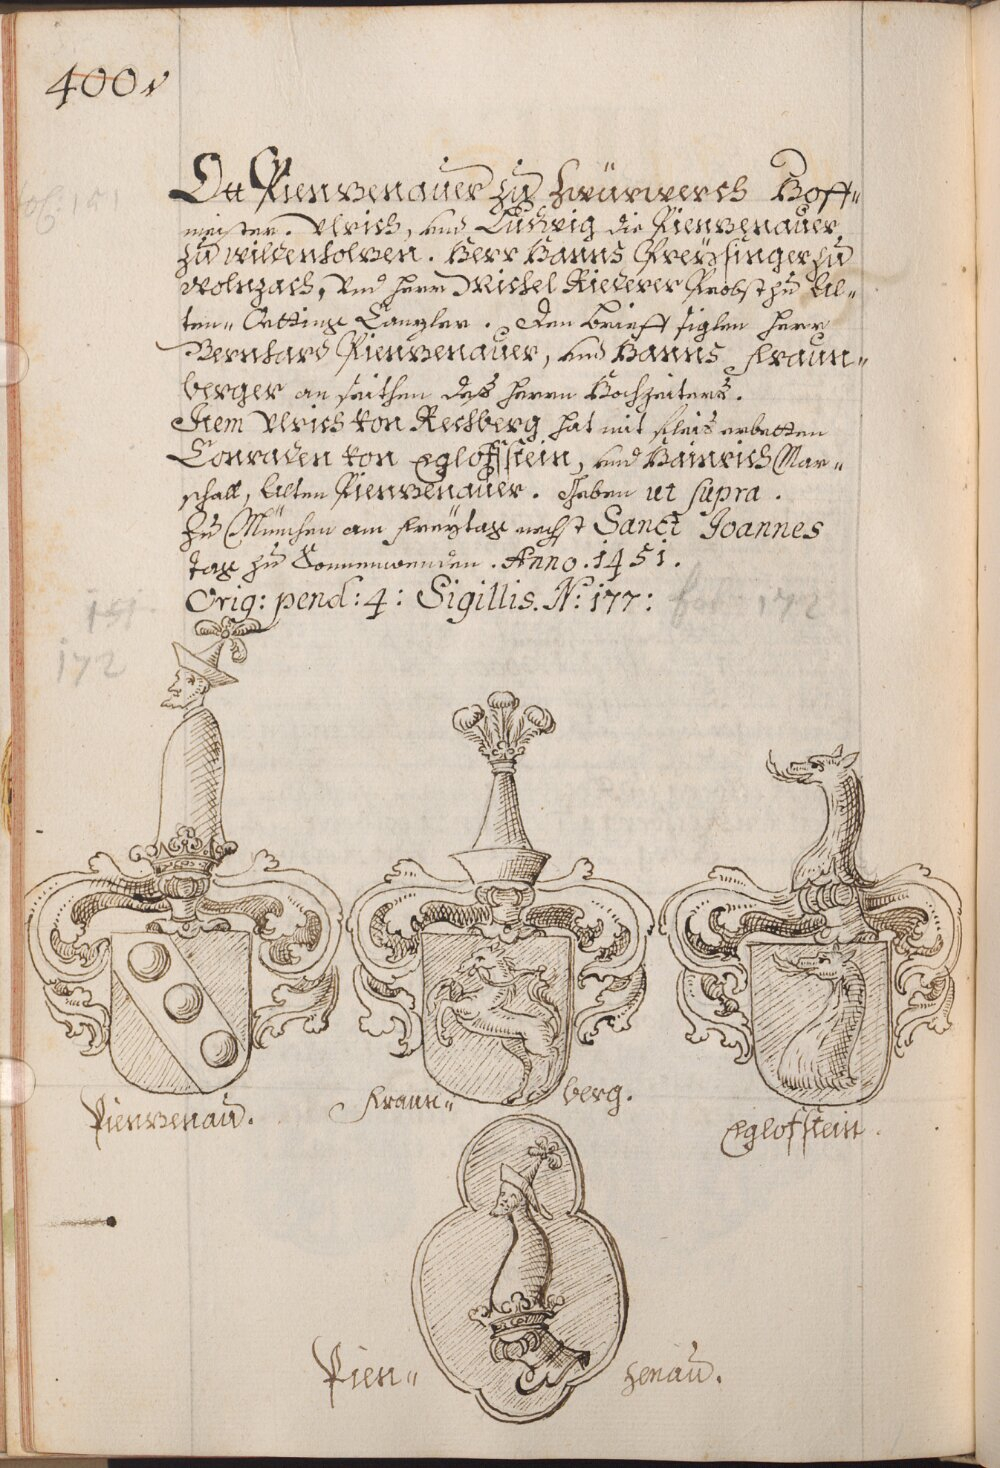 400.
fol: 151
Ott Pienzenauer zu Zwürwerch Hoff=
meister. Ulrich, und Ludwig die Pienzenauer
zu Wildenholzen. Herr Hanns Freysinger zu
Wolnzach, Und Herr Michel Riederer Probst zu Al=
ten= Oetting Canzler. Den brieff siglen herr
Bernhard Pienzenauer, und Hanns Fraun=
berger an seithen des Herrn Hochzeiters.
Item Ulrich von Rechberg hat mit fleis erbetten
Conraden von Eglofsstein, und Hainrich Mar=
schalt, Alten Pienzenauer. Geben ut supra.
Zu München am Freytag nechst Sanct Joannes
tag zu Sonnenwenden. Anno. 1451.
Orig: pend: 4: Sigillis. No: 177: fol: 172
151.
172
Pienzenau.
Fraun= berg.
Eglofstein.
Pien= zenau.